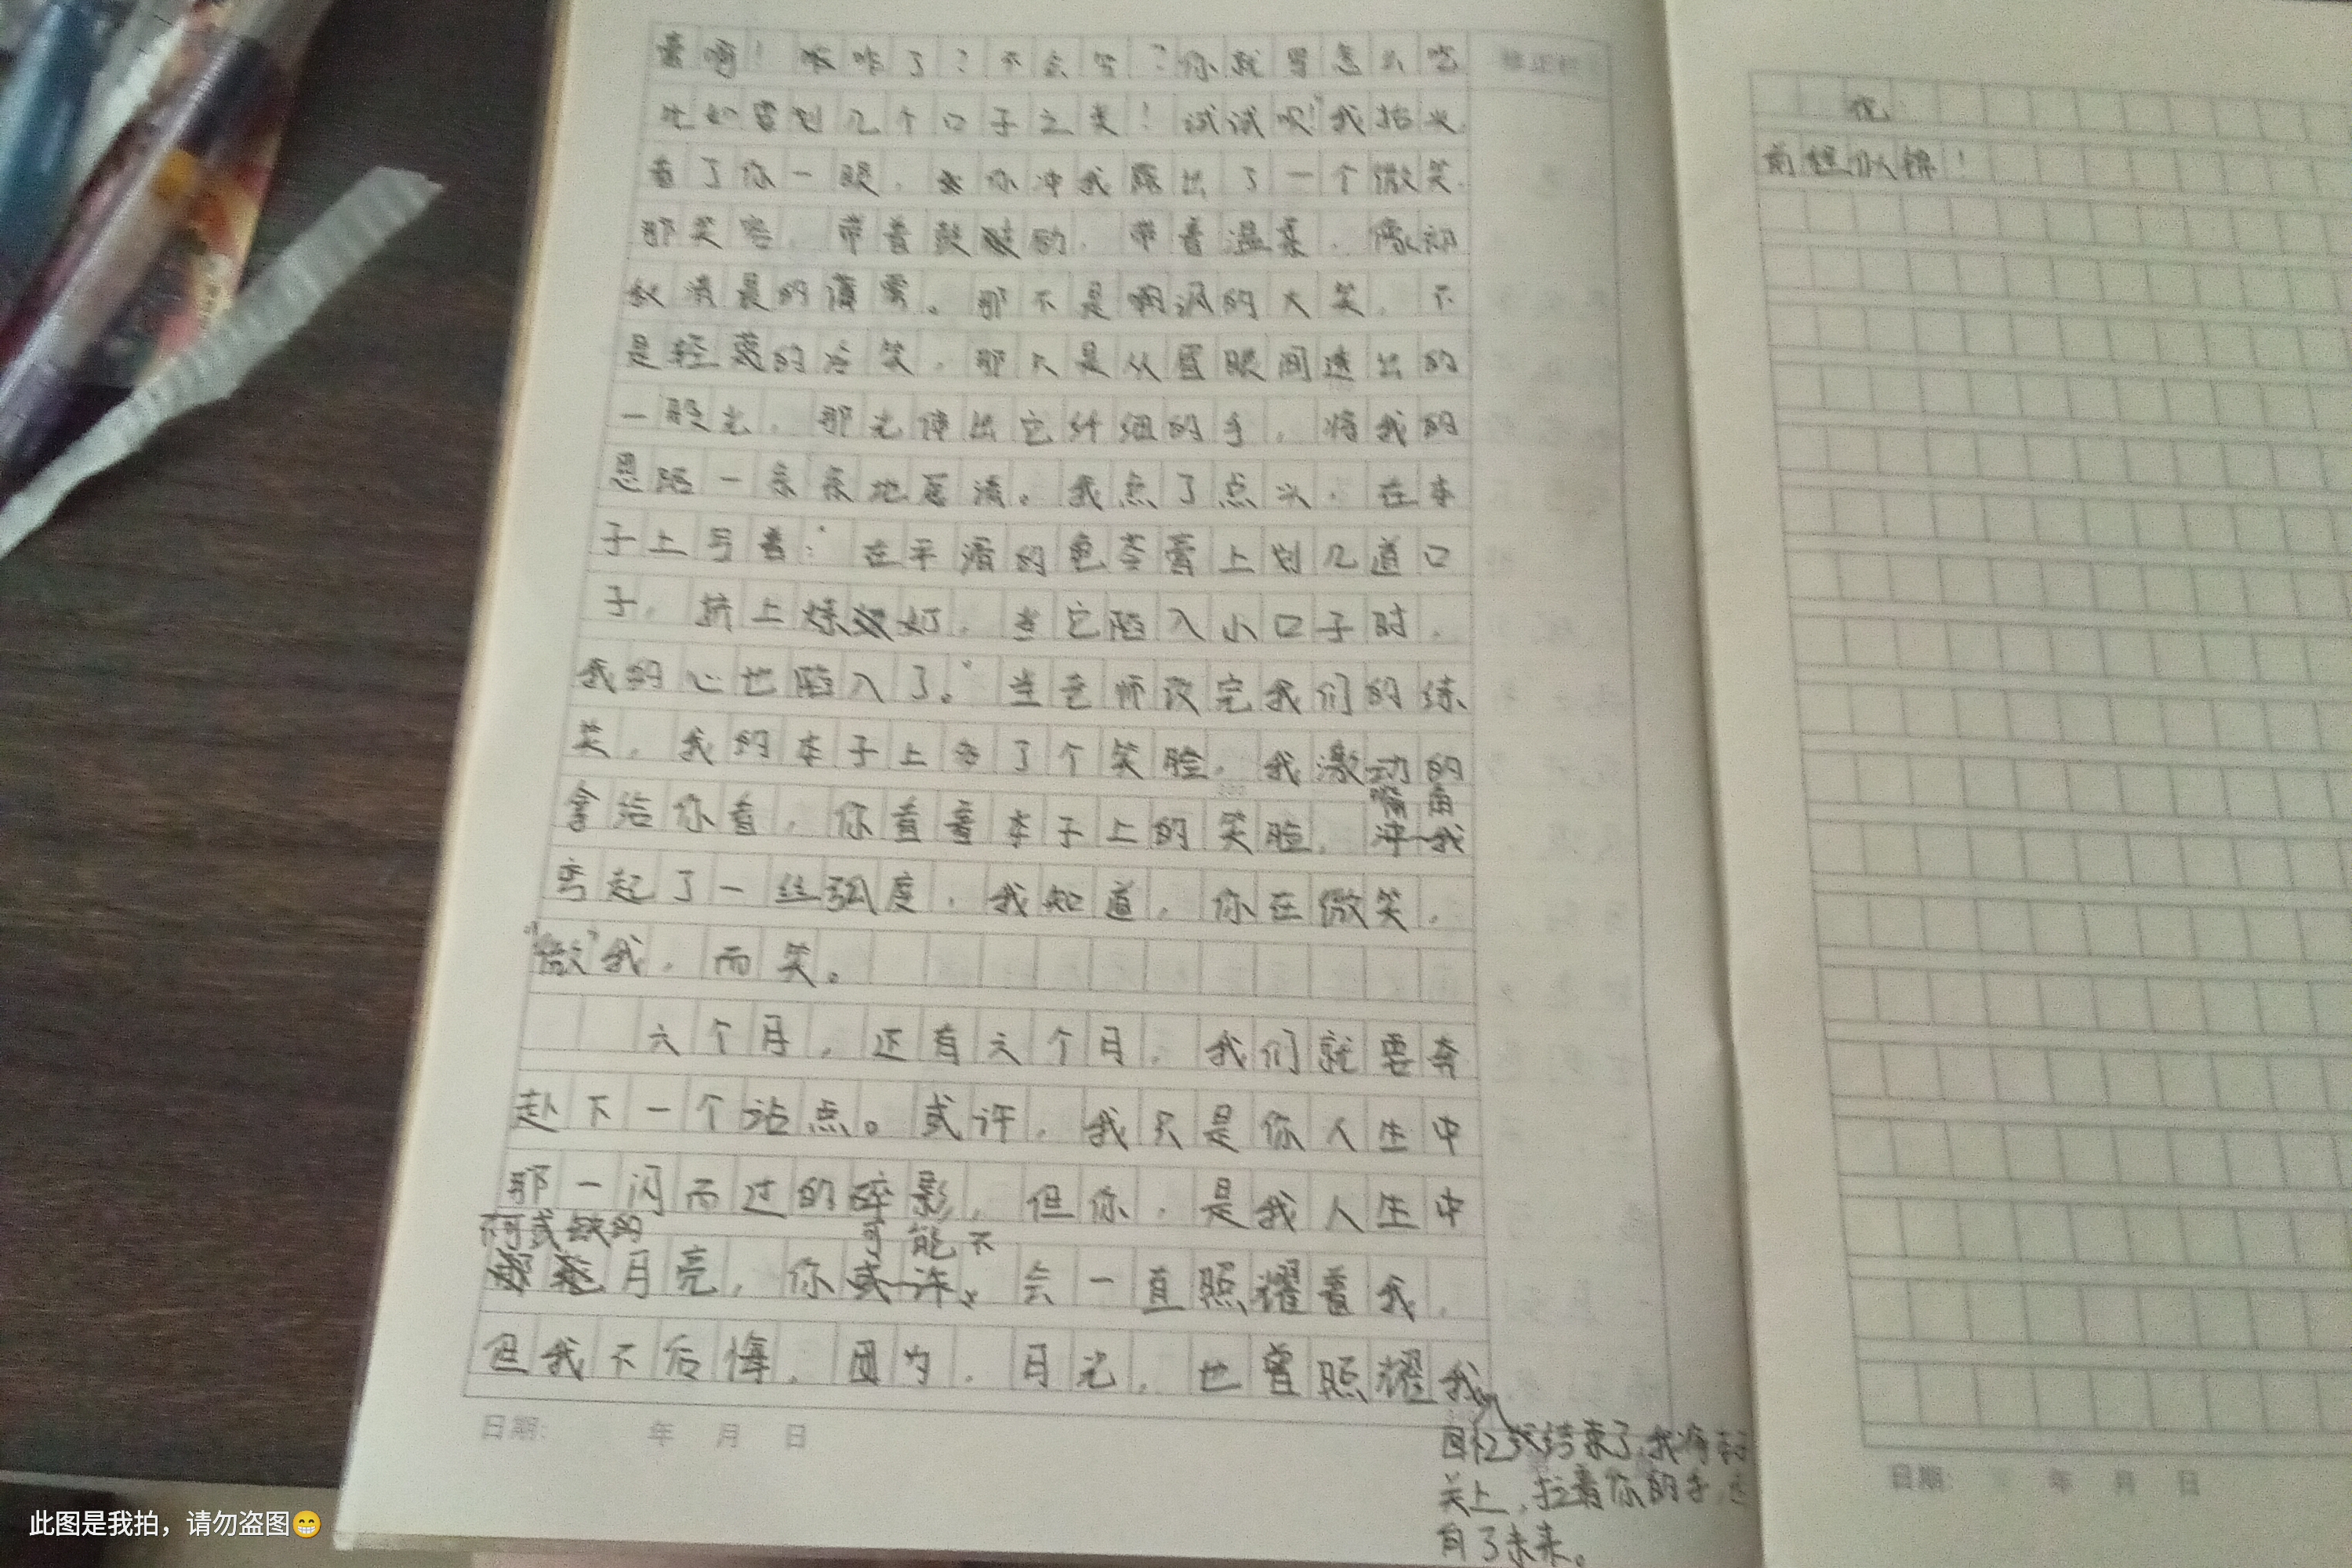 膏啊！咳咋了？不会写？你就写怎么吃
比如需划几个口子之类！试试呗！"我抬头
看了你一眼，你冲我露出了一个微笑，
那笑容，带着鼓励，带着温柔，像初
秋清晨的薄雾。那不是嘲讽的大笑，不
是轻蔑的冷笑，那只是从眉眼间透出的
一股光，那光伸出它纤细的手，将我的
思路一条条地厘清。我点了点头，在本
子上写着："在平滑的龟苓膏上划几道口
子，挤上炼奶，当它陷入小口子时，
我的心也陷入了。"当老师改完我们的练
笑，我的本子上多了个笑脸，我激动的
拿给你看，你看着本子上的笑脸，嘴角
弯起了一丝弧度，我知道，你在微笑，
"微"我，而笑。
六个月，还有六个月，我们就要奔
赴下一个站点。或许，我只是你人生中
那一闪而过的碎影，但你，是我人生中
不可或缺的月亮，你可能不会一直照耀着我，
但我不后悔，因为，月光，也曾照耀我
回忆结束了，我将
关上，拉着你的手，
有了未来。
日期： 年 月 日
祝：
前程似锦！
日期： 年 月 日
此图是我拍，请勿盗图😁